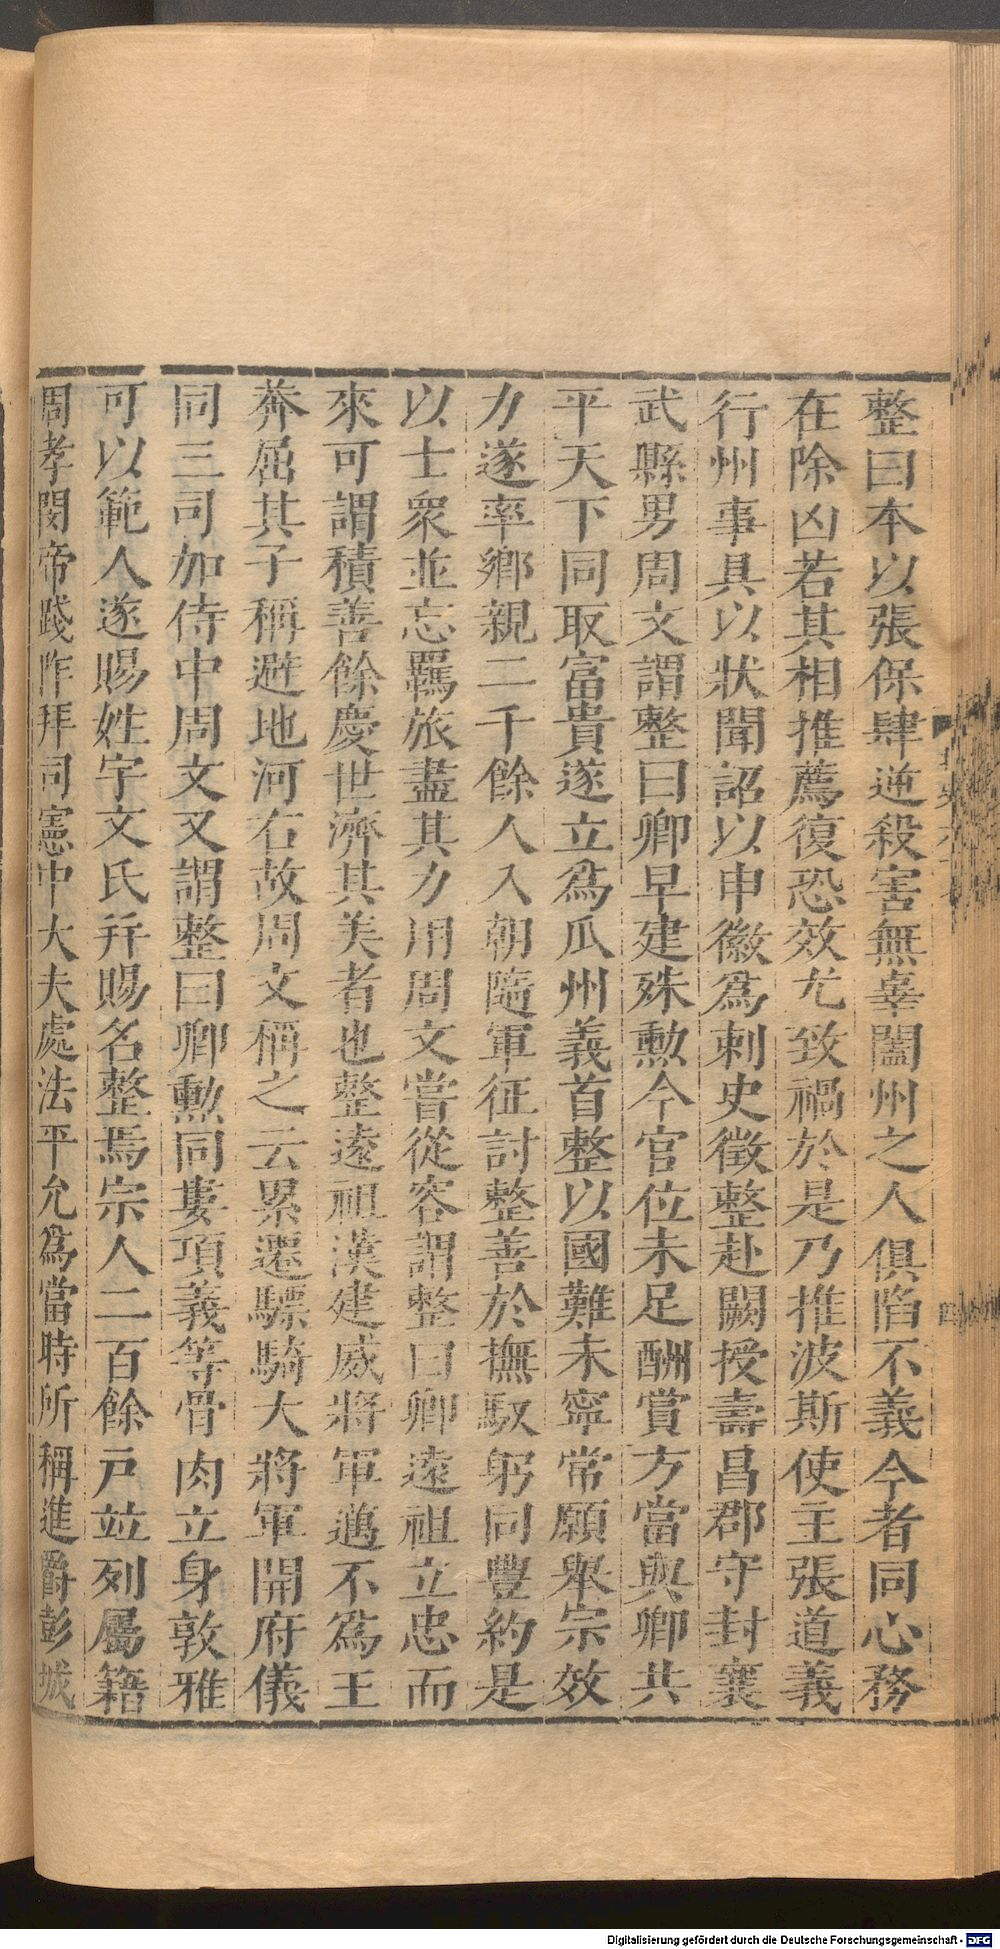 整曰本以張保肆逆殺害無辜闔州之人俱陷不義今者同心務
在除凶若其相推薦復恐效尤致禍於是乃推波斯使主張道義
行州事具以狀聞詔以申徽爲刺史徵整赴闕授壽昌郡守封襄
武縣男周文謂整曰卿早建殊勲今官位未足酬賞方當與卿共
平天下同取富貴遂立爲瓜州義首整以國難未寧常願舉宗效
力遂率鄉親二千餘人入朝隨軍征討整善於撫馭躬同豐約是
以士衆並忘羇旅盡其力用周文嘗從容謂整曰卿遠祖立忠而
來可謂積善餘慶世濟其美者也整遠祖漢建威將軍邁不爲王
莽屈其子稱避地河右故周文稱之云累遷驃騎大將軍開府儀
同三司加侍中周文又謂整曰卿勲同婁項義等骨肉立身敦雅
可以範人遂賜姓宇文氏并賜名整焉宗人二百餘戶竝列屬籍
周孝閔帝踐阼拜司憲中大夫處法平允爲當時所稱進爵彭城
Digitalisierung gefördert durch die Deutsche Forschungsgemeinschaft - DFG